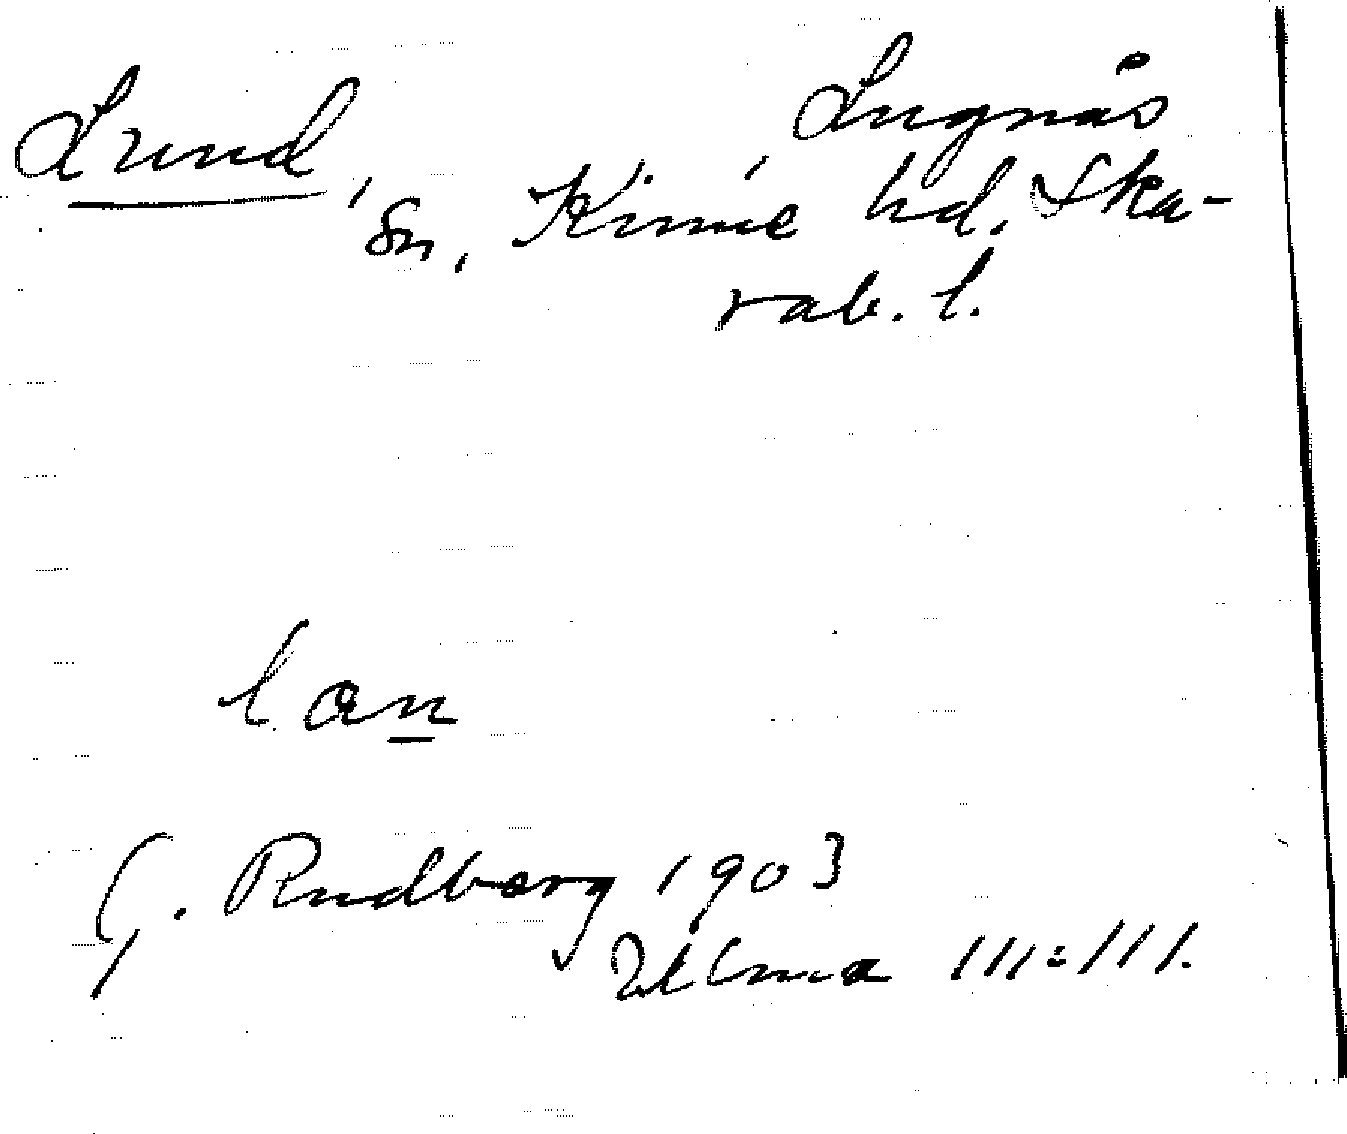 Lund, Lugnås
sn, Kinne hd, Ska-
rab. l.
lan
G. Rudberg 1903
111:111.